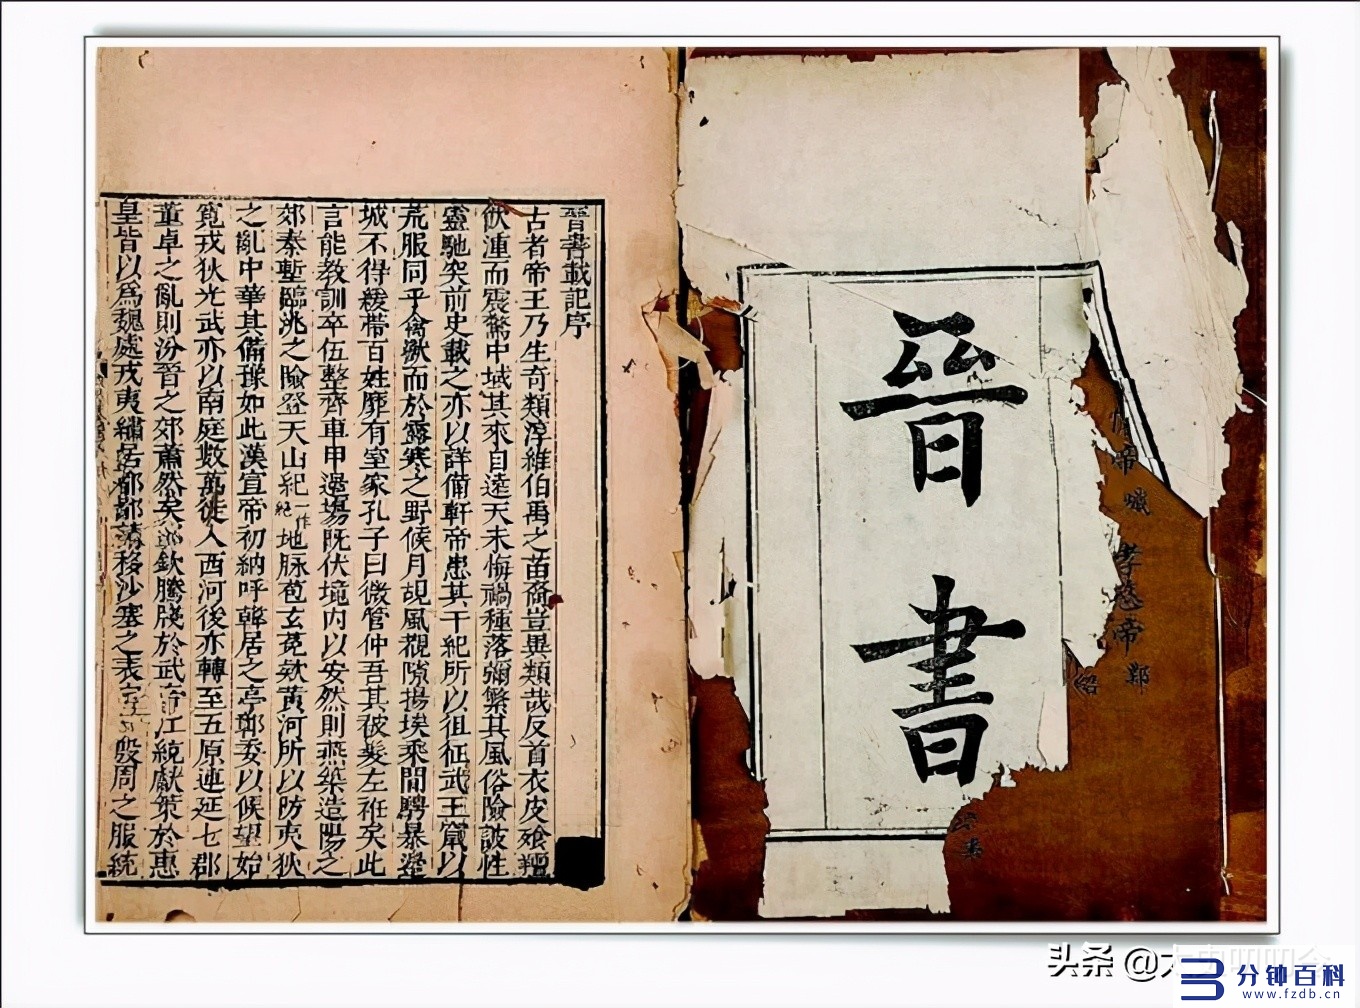 晉
書
帝
孝愍帝
鄴
晉書載記序
古者帝王乃生奇類淳維伯禹之苗裔豈異類哉反首衣皮飱羶
飮湩而震驚中域其來自遠天未悔禍種落彌繁其風俗險詖性
靈馳突前史載之亦以詳備軒帝患其干紀所以徂征武王竄以
荒服同乎禽獸而於露寒之野候月覘風覩隙揚埃乘間騁暴邊
城不得緩帶百姓靡有室家孔子曰微管仲吾其被髮左袵矣此
言能教訓卒伍整齊車甲邊塲既伏境内以安然則燕築造陽之
郊秦塹臨洮之險登天山紀一作絶地脉苞玄菟欵黃河所以防夷狄
之亂中華其備豫如此漢宣帝初納呼韓居之亭鄣委以候望始
寛戎狄光武亦以南庭數萬徙入西河後亦轉至五原連延七郡
董卓之亂則汾晉之郊蕭然矣郭欽騰牋於武帝江統獻策於惠
皇皆以爲魏處戎夷繡居都鄙請移沙塞之表定一殷周之服統
头条 @
分钟百科
www.fzdb.cn